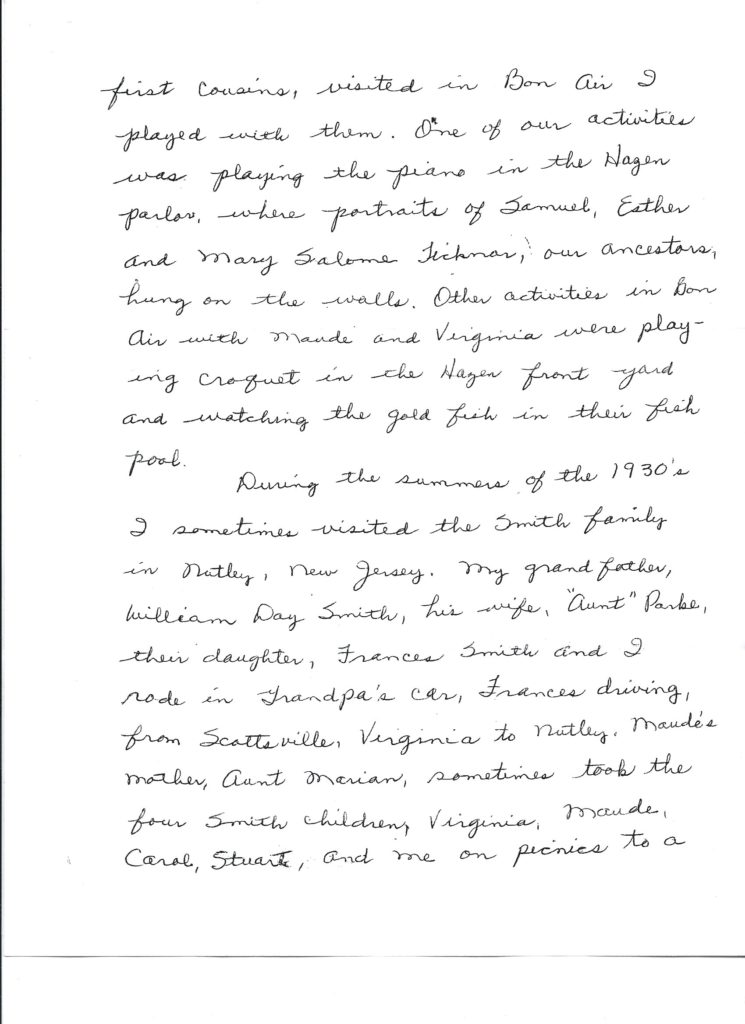 first cousins, visited in Bon Air I
played with them. One of our activities
was playing the piano in the Hazen
parlor, where portraits of Samuel, Esther
and Mary Salome Ticknor, our ancestors,
hung on the walls. Other activities in Bon
Air with Maude and Virginia were play-
ing croquet in the Hazen front yard
and watching the gold fish in their fish
pool.
During the summers of the 1930's
I sometimes visited the Smith family
in Nutley, New Jersey. My grandfather,
William Day Smith, his wife, "Aunt" Parke,
their daughter, Frances Smith and I
rode in Grandpa's car, Frances driving,
from Scottsville, Virginia to Nutley. Maude's
mother, Aunt Marian, sometimes took the
four Smith children, Virginia, Maude,
Carol, Stuart, and me on picnics to a